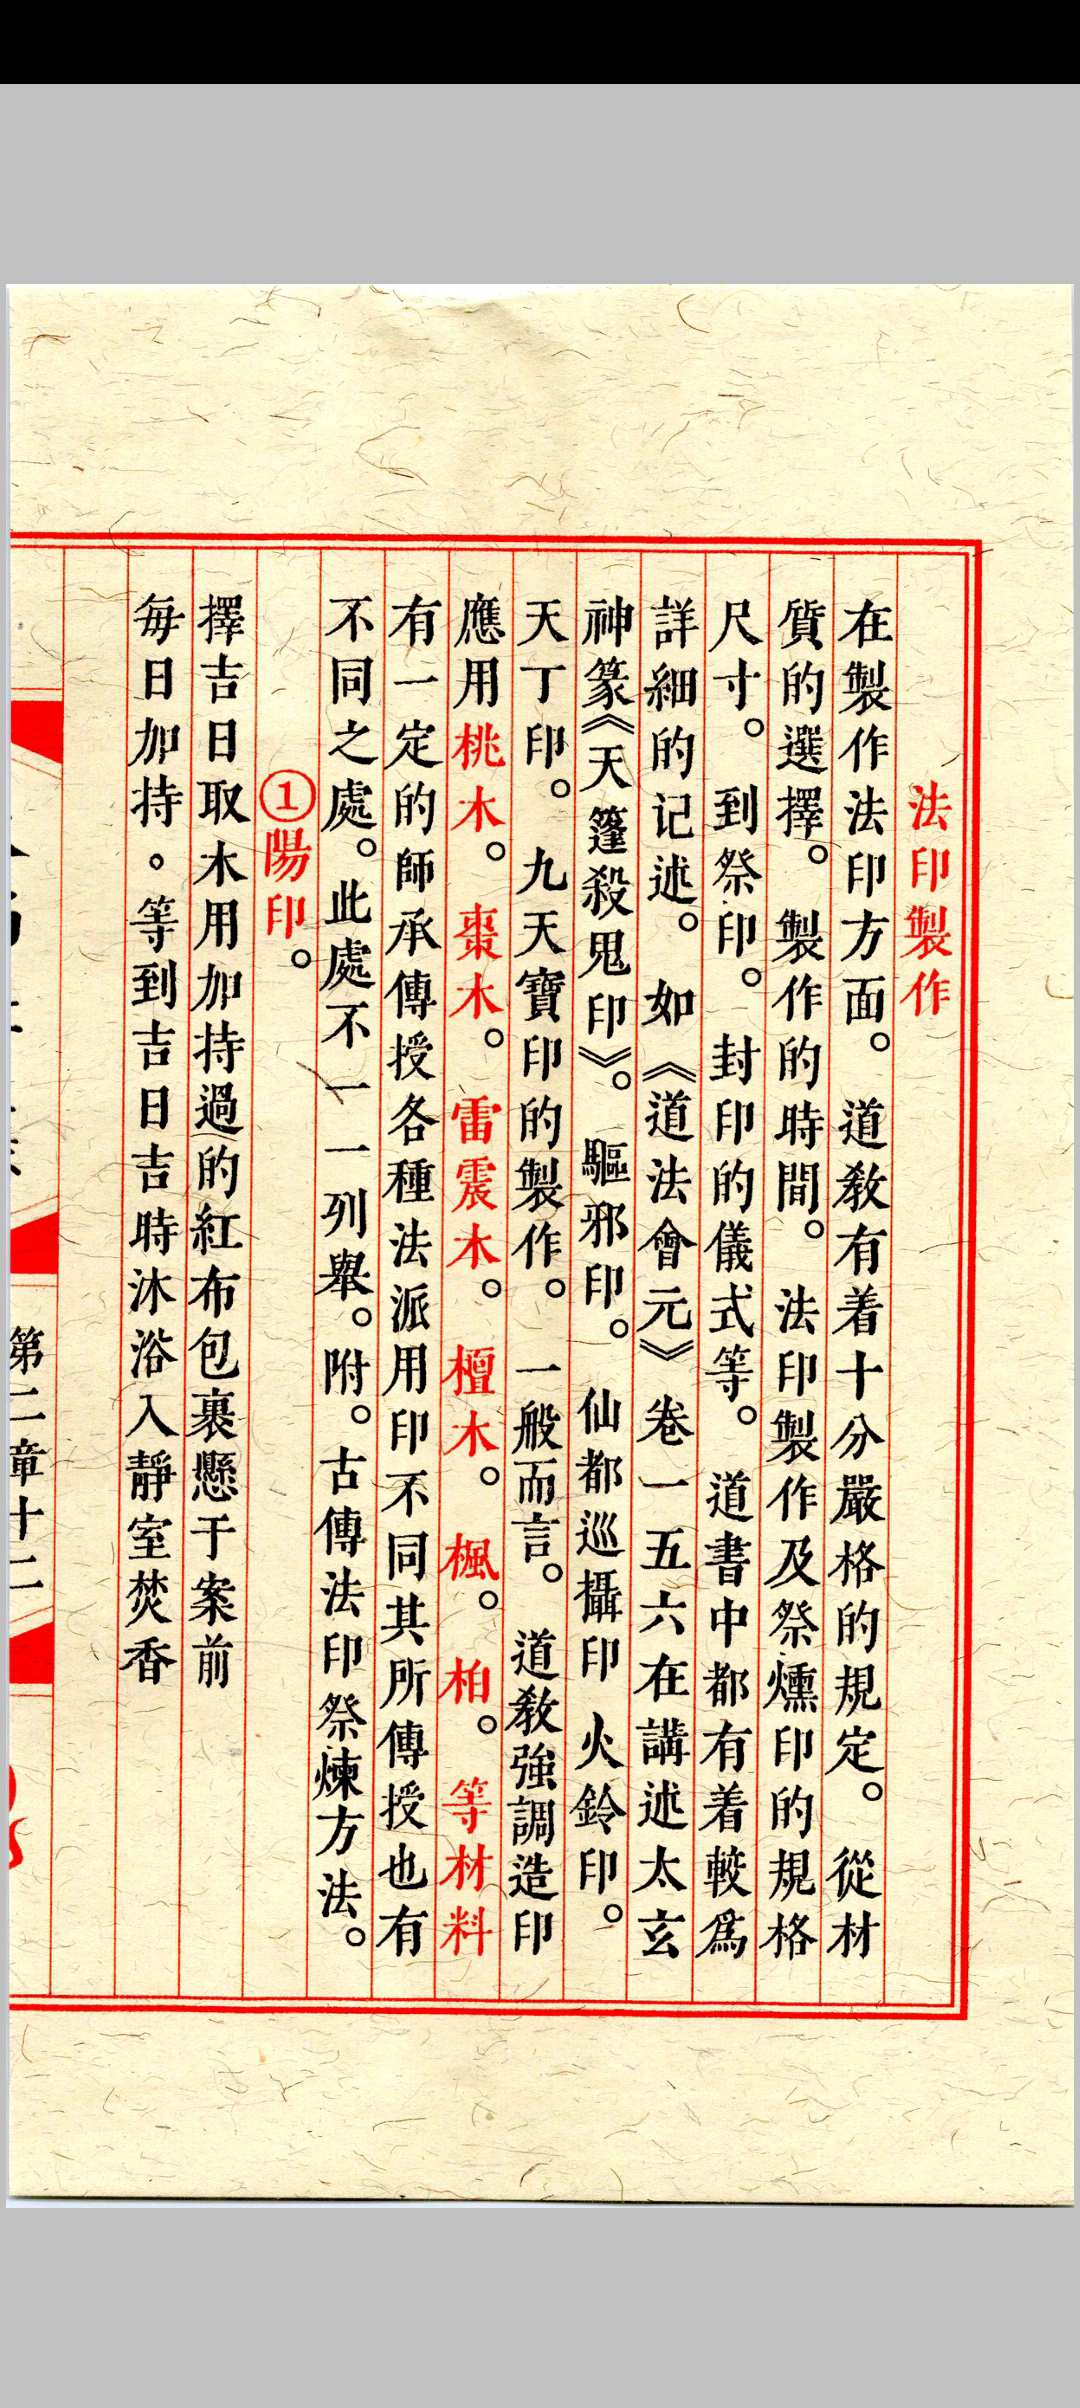 法印製作
在製作法印方面。道教有着十分嚴格的規定。從材
質的選擇。製作的時間。法印製作及祭爋印的規格
尺寸。到祭印。封印的儀式等。道書中都有着較爲
詳細的记述。如《道法會元》卷一五六在講述太玄
神篆《天篷殺鬼印》。驅邪印。仙都巡攝印火鈴印。
天丁印。九天寶印的製作。一般而言。道教強調造印
應用桃木。棗木。雷震木。檀木。楓。柏。等材料
有一定的師承傳授各種法派用印不同其所傳授也有
不同之處。此處不一一列舉。附。古傳法印祭煉方法。
①陽印。
擇吉日取木用加持過的紅布包裹懸于案前
每日加持。等到吉日吉時沐浴入靜室焚香
第二章十二